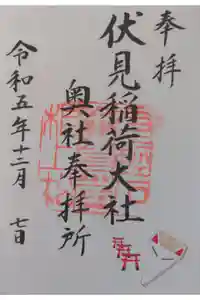 奉拝
伏見稲荷大社
奥社奉拝所
令和五年十二月七日